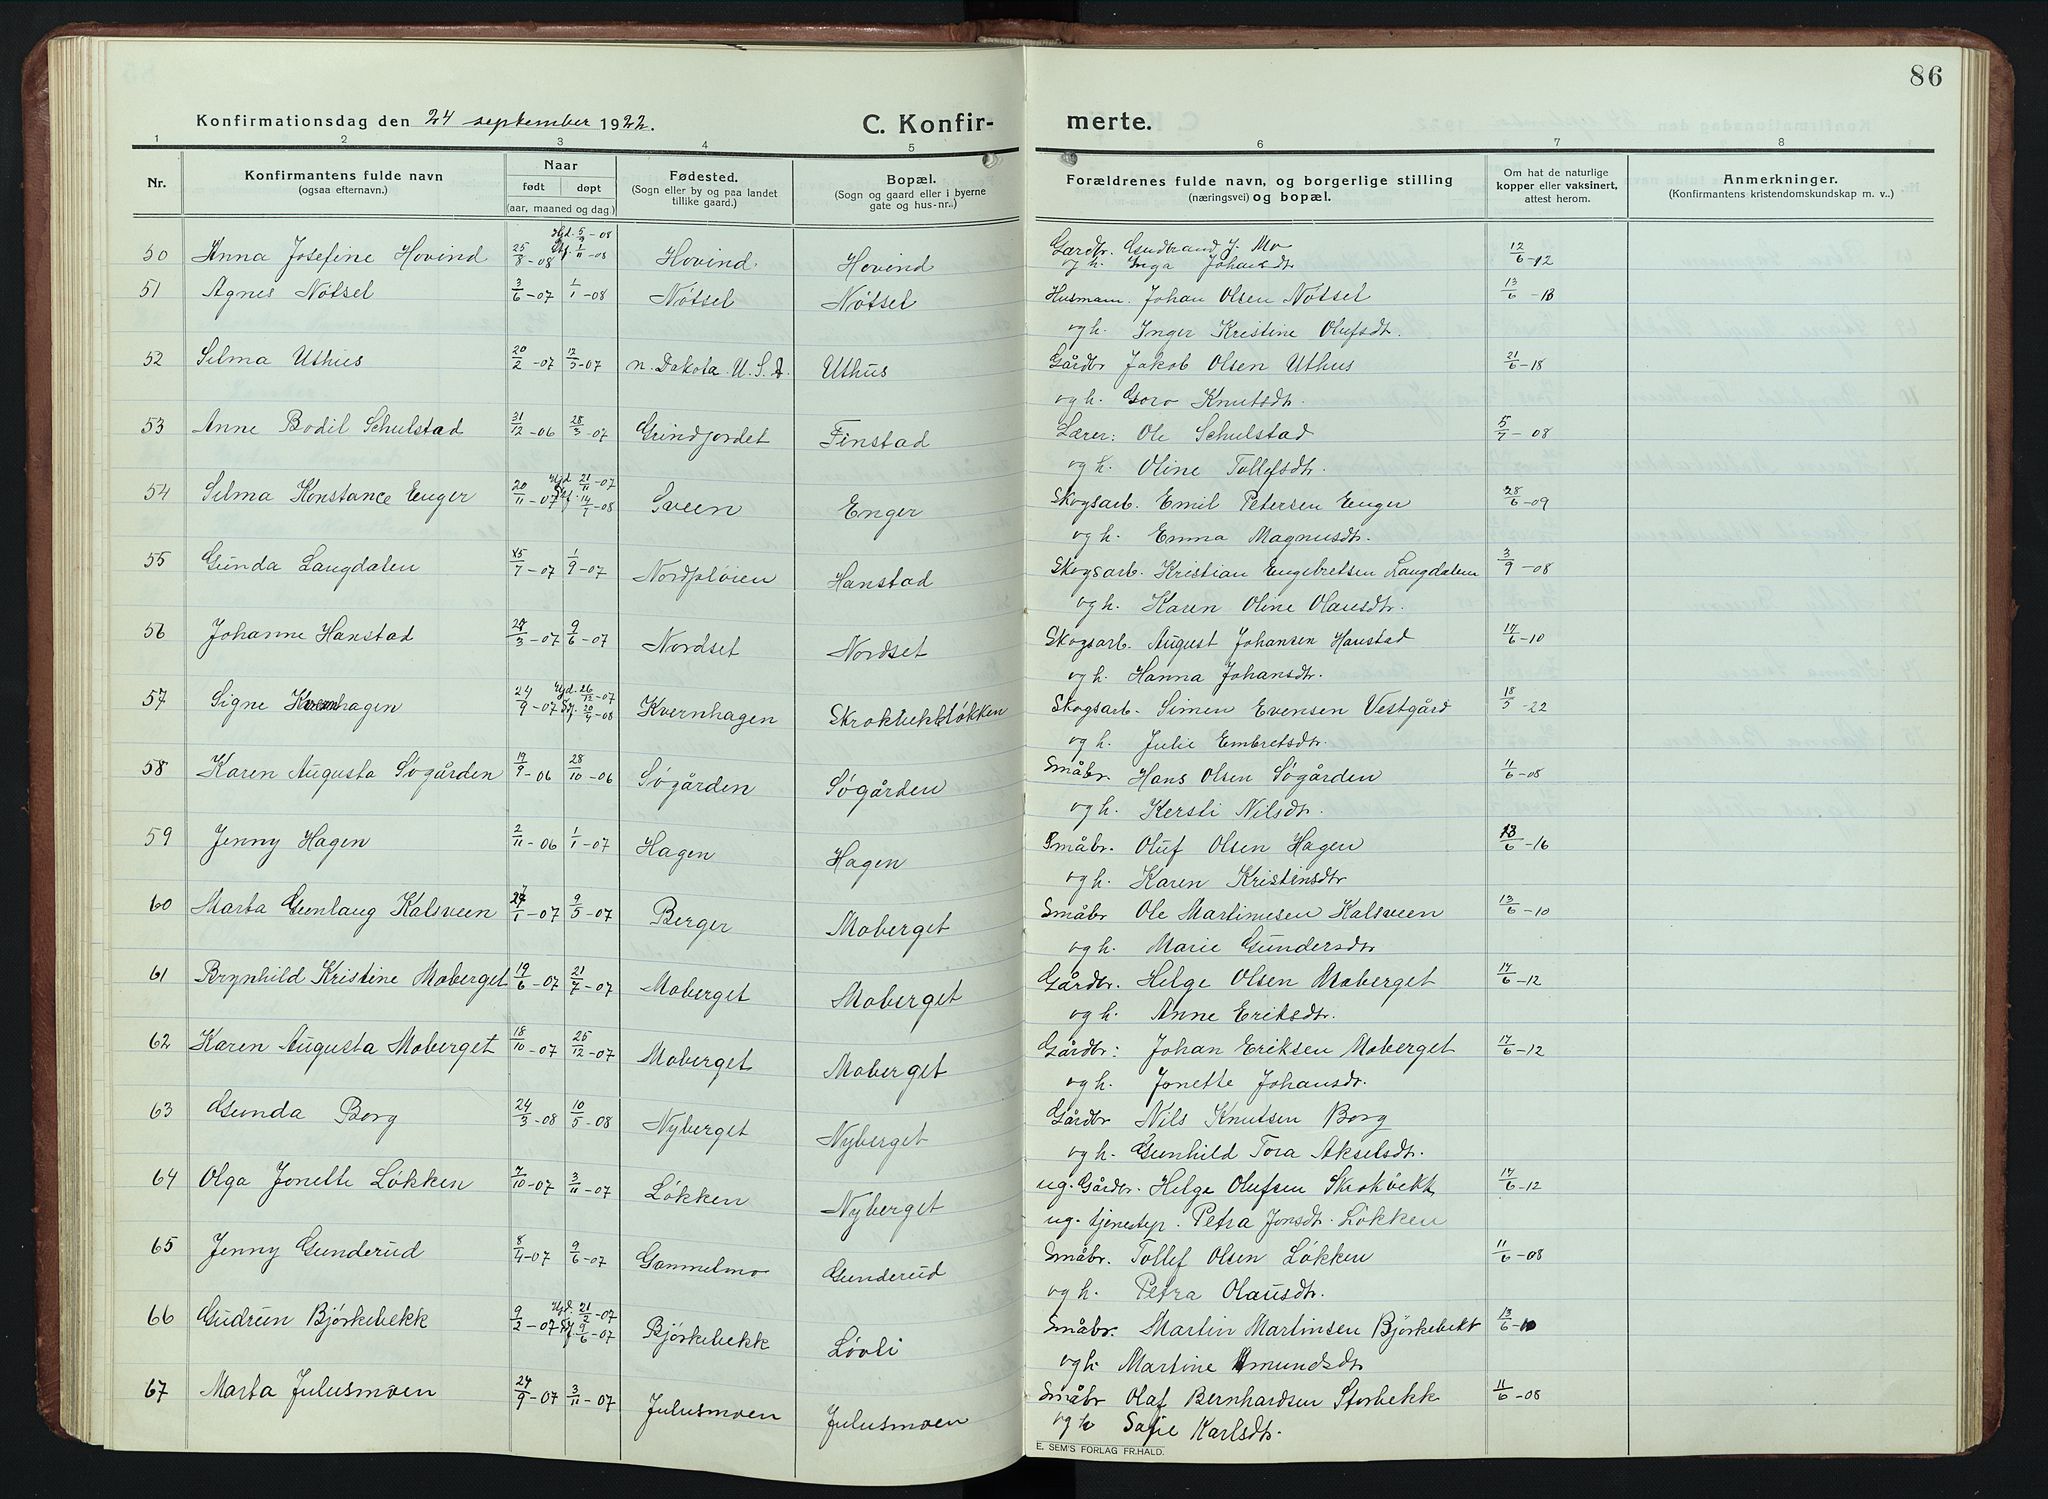 86
Konfirmationsdag den 24 september 1922.
C. Konfir-
merte.
1 2 3 4 5 6 7 8
Nr.
Konfirmantens fulde navn
(ogsaa efternavn.)
Naar
født døpt
(aar, maaned og dag.)
Fødested.
(Sogn eller by og paa landet
tillike gaard.)
Bopæl.
(Sogn og gaard eller i byerne
gate og hus-nr.)
Forældrenes fulde navn, og borgerlige stilling
(næringsvei) og bopæl.
Om hat de naturlige
kopper eller vaksinert,
attest herom.
Anmerkninger.
(Konfirmantens kristendomskundskap m. v..)
Hjd. 5/9-08
50 Anna Josefine Hovind 25/8-08 1/11-08 Hovind Hovind Gardbr. Gudbrand J. Mo 12/6-12
og h. Inga Johansdtr
51 Agnes Nötsel 3/6-07 1/1-08 Nötsel Nötsel Husmann. Johan Olsen Nötsel 13/6-13
og h. Inger Kristine Olufsdtr.
52 Selma Uthus 20/2-07 12/5-07 n. Dakota U.S.A. Uthus Gårdbr Jakob Olsen Uthus 21/6-18
og h. Goro Knutsdtr.
53 Anne Bodil Schulstad 31/12-06 28/3-07 Grindjordet Finstad Lærer: Ole Schulstad 5/7-08
og h. Oline Tollefsdtr.
Hjd. 21/11-07
54 Selma Konstance Enger 20/11-07 14/7-08 Sveen Enger Skogsarb. Emil Petersen Enger 28/6-09
og h. Emma Magnusdtr.
55 Gunda Langdalen 15/7-07 1/9-07 Nordpløien Hanstad Skogsarb. Kristian Engebretsen Langdalen 3/9-08
og h. Karen Oline Olausdtr.
56 Johanne Hanstad 27/3-07 9/6-07 Nordset Nordset Skogsarb. August Johansen Hanstad 17/6-10
og h. Hanna Johansdtr.
Hjd. 26/12-07
57 Signe Kvernhagen 24/9-07 20/4-08 Kvernhagen Skrokbekkløkken Skogsarb. Simen Evensen Vestgård 18/5-22
og h. Julie Embretsdtr.
58 Karen Augusta Søgården 17/9-06 28/10-06 Søgården Søgården Småbr. Hans Olsen Søgården 11/6-08
og h. Kersti Nilsdtr.
59 Jenny Hagen 2/11-06 1/1-07 Hagen Hagen Småbr. Oluf Olsen Hagen 13/6-16
og h. Karen Kristinsdtr
60 Marta Gunlaug Kalsveen 27/1-07 9/5-07 Berger Moberget Småbr Ole Martinusen Kalsveen 13/6-10
og h. Marie Gundersdtr
61 Brynhild Kristine Moberget 19/6-07 21/7-07 Moberget Moberget Gårdbr. Helge Olsen Moberget 17/6-12
og h. Anne Eriksdtr.
62 Karen Augusta Moberget 18/10-07 25/12-07 Moberget Moberget Gårdbr: Johan Eriksen Moberget 17/6-12
og h. Jonette Johansdtr.
63 Gunda Borg 24/3-08 10/5-08 Nyberget Nyberget Gårdbr Nils Knutsen Borg
og h. Gunhild Tora Akselsdtr.
64 Olga Jonette Løkken 7/10-07 3/11-07 Løkken Nyberget ug. Gårdbr. Helge Olufsen Skrokbekk 17/6-12
ug. tjenestep. Petra Jonsdtr. Løkken
65 Jenny Gunderud 8/4-07 9/6-07 Gammelmo Gunderud Småbr. Tollef Olsen Løkken 11/6-08
og h. Petra Olausdtr.
Hjd. 21/2-07
66 Gudrun Björkebekk 9/2-07 9/6-07 Björkebekk Lövli Småbr. Martin Martinsen Björkebekk 13/6-10
og h. Martine Amundsdtr
67 Marta Julusmoen 24/9-07 3/11-07 Julusmoen Julusmoen Småbr Olaf Bernhardsen Storbekk 11/6-08
og h Sofie Karlsdtr.
E. SEM'S FORLAG FR.HALD.